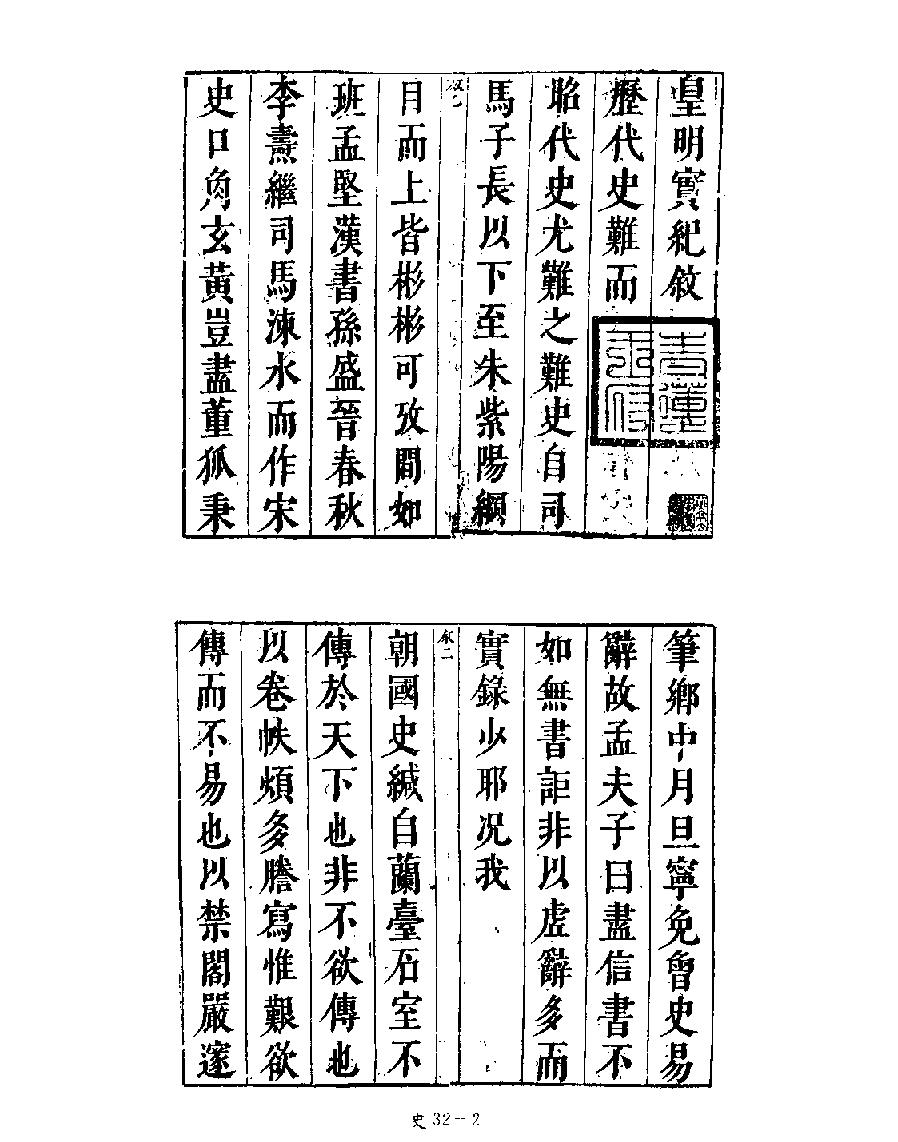 皇明實紀敘
歷代史難而
昭代史尤難之難史自司
馬子長以下至朱紫陽綱
目而上皆彬彬可攷間如
班孟堅漢書孫盛晉春秋
李燾繼司馬涑水而作宋
史口角玄黃豈盡董狐秉
筆鄉中月旦寧免曾史易
辭故孟夫子曰盡信書不
如無書詎非以虛辭多而
實錄少耶况我
永二
朝國史緘自蘭臺石室不
傳於天下也非不欲傳也
以卷帙頻多謄寫惟艱欲
傳而不易也以禁閣嚴邃
史 32-2